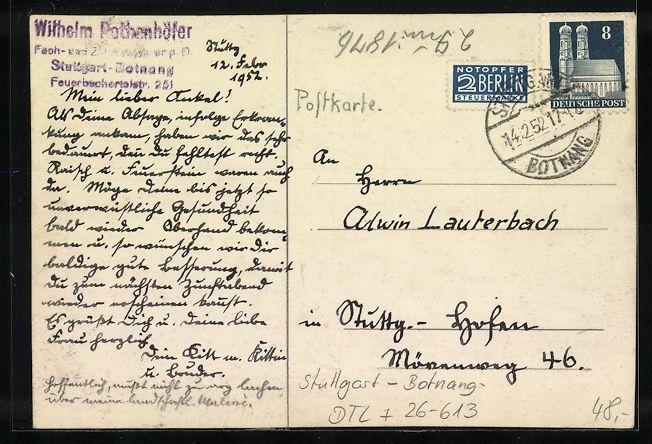 Wilhelm Pothenhöfer
Fach- und
Stuttgart-Botnang
Feuerbachertalstr. 25
Stuttg.
12. Febr.
1952.
Mein lieber Onkel!
Als deine Absage, infolge Erkran-
kung ankam, haben wir das sehr
bedauert, denn du fehltest recht.
Raisch u. Feuerstein waren auch
da. Möge deine bis jetzt so
unverwüstliche Gesundheit
bald wieder Oberhand bekom-
men u. so wünschen wir dir
baldige gute Besserung, damit
du zum nächsten Zunftabend
wieder erscheinen kannst.
Es grüßt Dich u. deine liebe
Frau herzlich
Dein Kitt m. Kittin
u. Bruder.
Hoffentlich mußt nicht zu arg lachen
über meine landschaftl. Malerei.
Postkarte.
NOTOPFER
2 BERLIN
STEUERMARKE
8
DEUTSCHE POST
14.2.52.17
BOTNANG
An
Herrn
Alwin Lauterbach
in Stuttg.- Hofen
Mövenweg 46.
Stuttgart - Botnang
DTL + 26-613
48,-